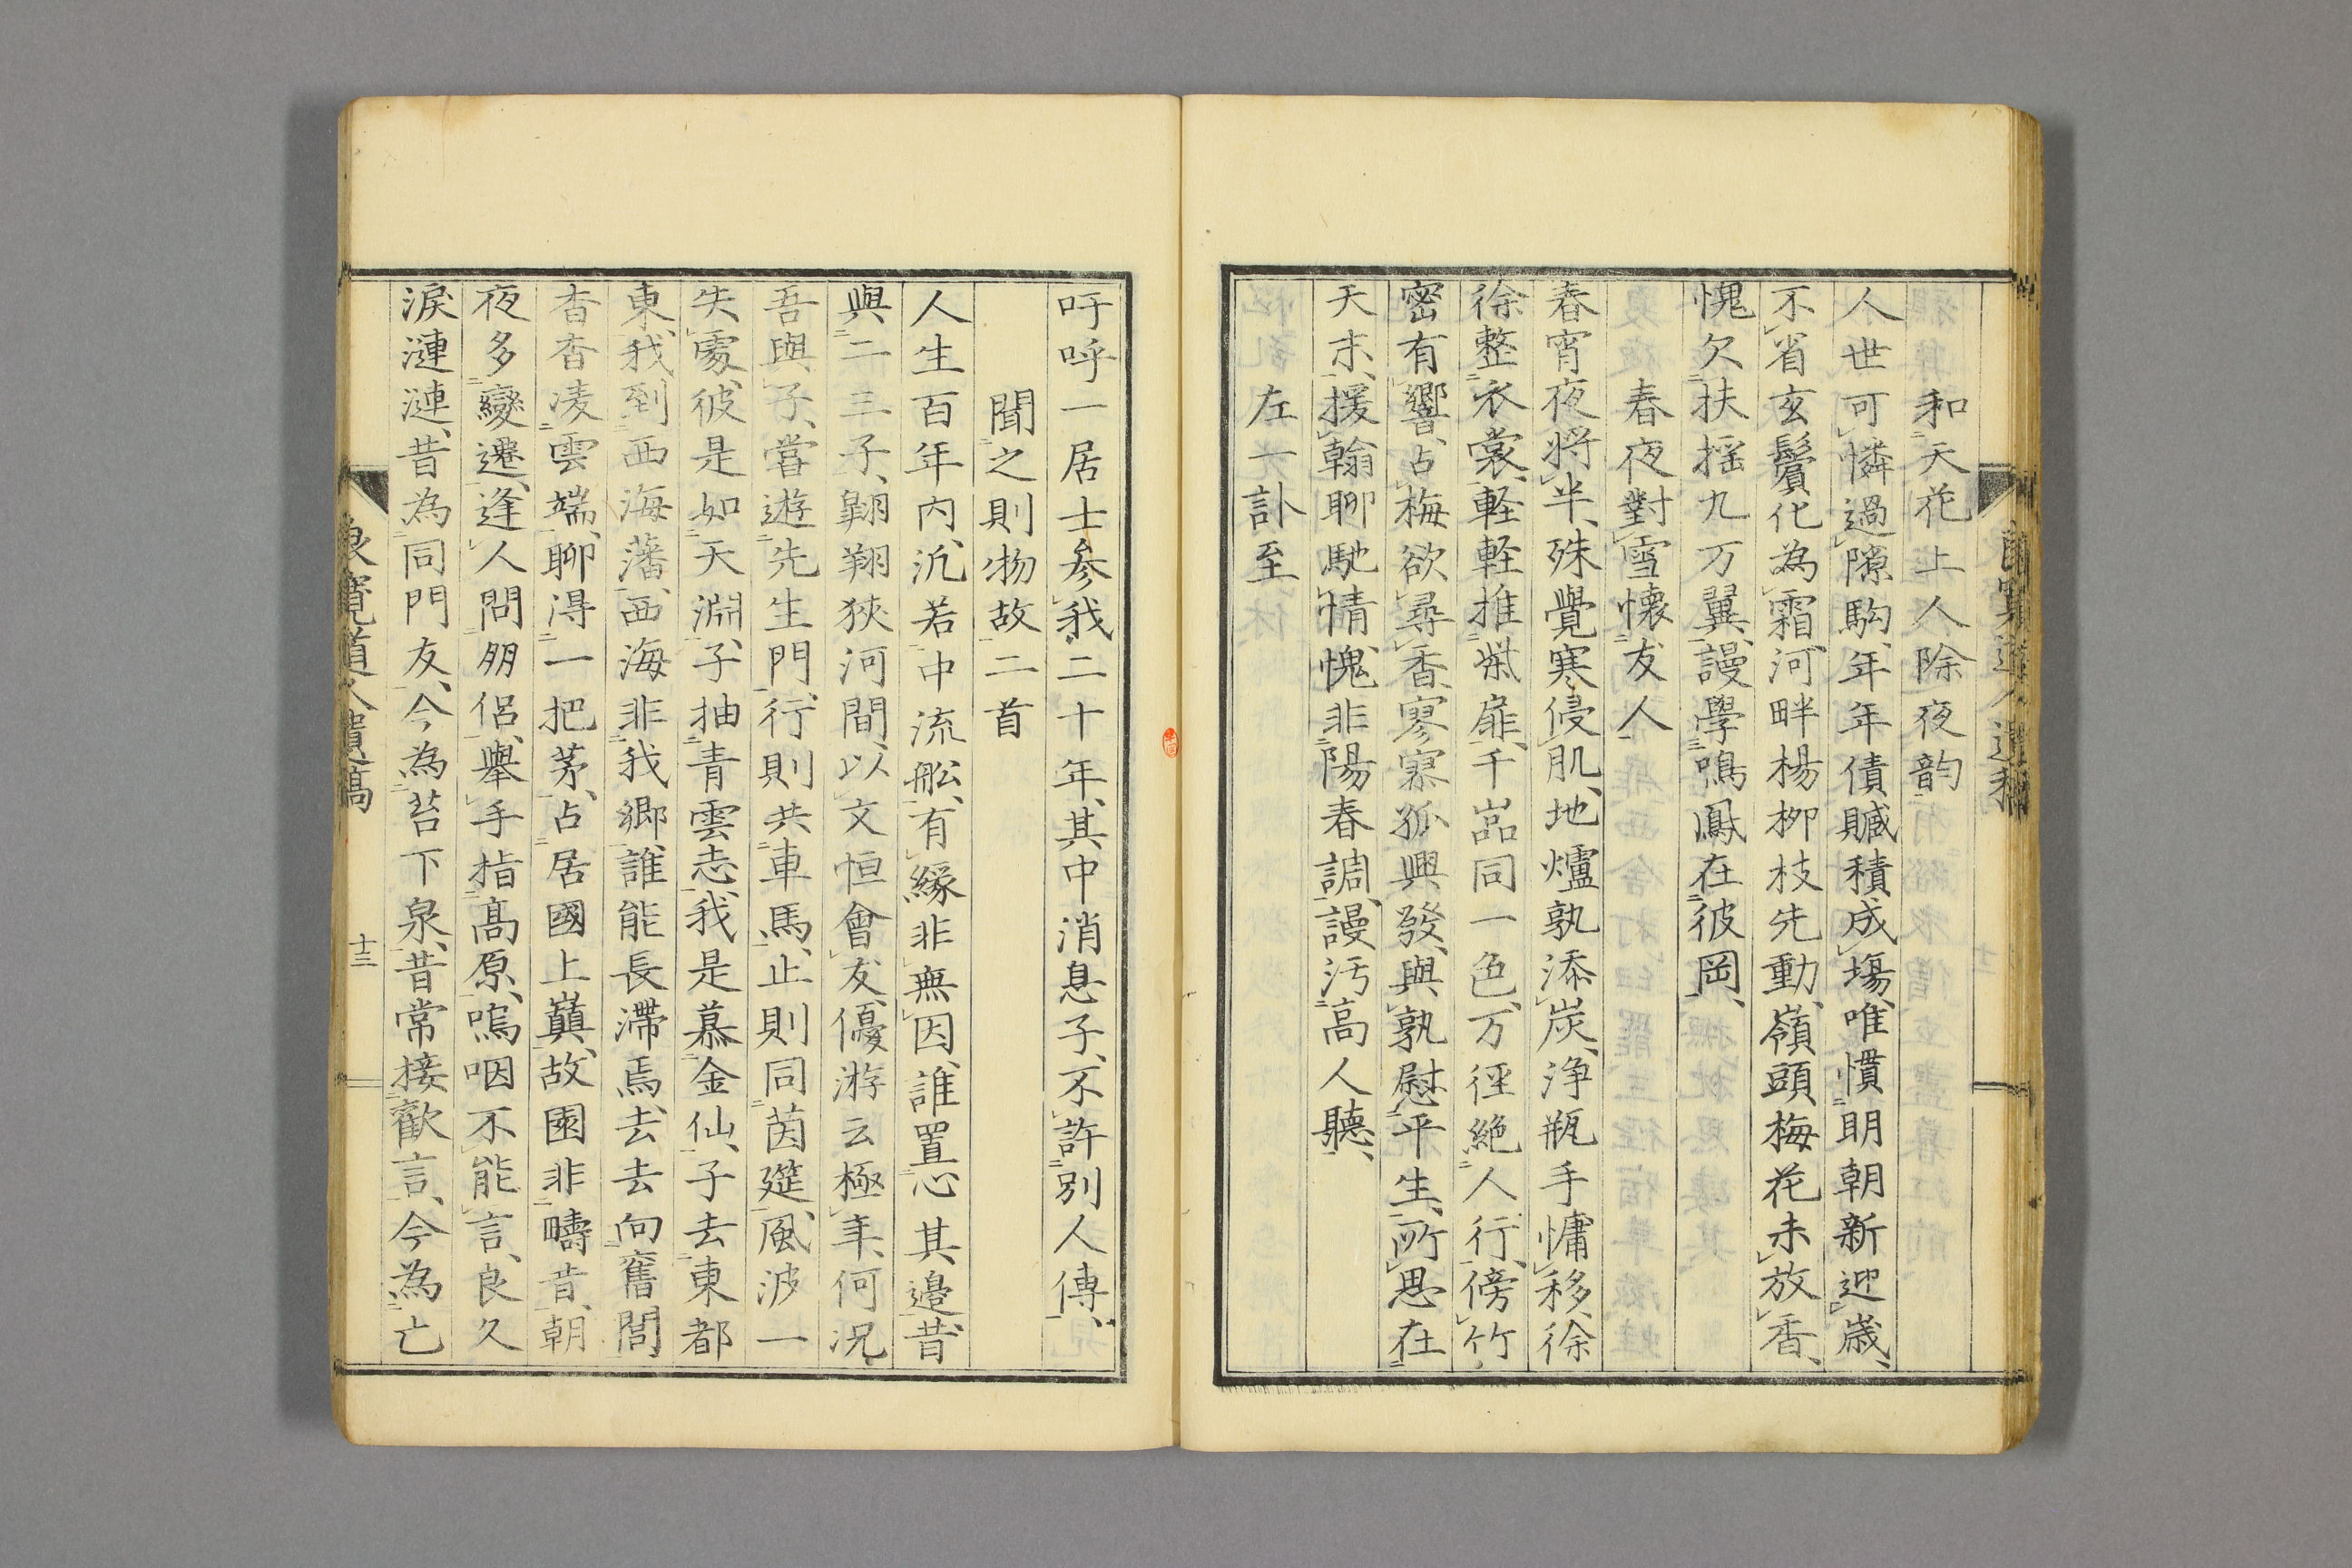 和天花上人除夜韵
人世可憐過隙駒、年年債贓積成場、唯慣明朝新迎歳、
不省玄鬢化為霜、河畔楊柳枝先動、嶺頭梅花未放香、
愧欠扶揺九万翼、謾學鳴鳳在彼岡、
春夜對雪懷友人
春宵夜將半、殊覺寒侵肌、地爐孰添炭、浄瓶手慵移、徐
徐整衣裳、軽軽推柴扉、千嵓同一色、万徑絶人行、傍竹
密有響、占梅欲尋香、寥寥孤興發、與孰慰平生、所思在
天末、援翰聊馳情、愧非陽春調、謾汚高人聽、
左一訃至
吁呼一居士参我二十年、其中消息子、不許別人傳、
聞之則物故二首
人生百年内、汎若中流舩、有緣非無因、誰置心其邊、昔
與二三子、翺翔狹河間、以文恒會友、優游云極年、何况
吾與子、嘗遊先生門、行則共車馬、止則同茵筵、風波一
失處、彼是如天淵、子抽青雲志、我是慕金仙、子去東都
東、我到西海藩、西海非我郷、誰能長滯焉、去去向舊閭
杳杳凌雲端、聊得一把茅、占居國上巓、故園非疇昔、朝
夜多變遷、逢人問朋侶、舉手指髙原、嗚咽不能言、良久
淚漣漣、昔為同門友、今為苔下泉、昔常接歡言、今為亡
良寛道人遺稿
十三